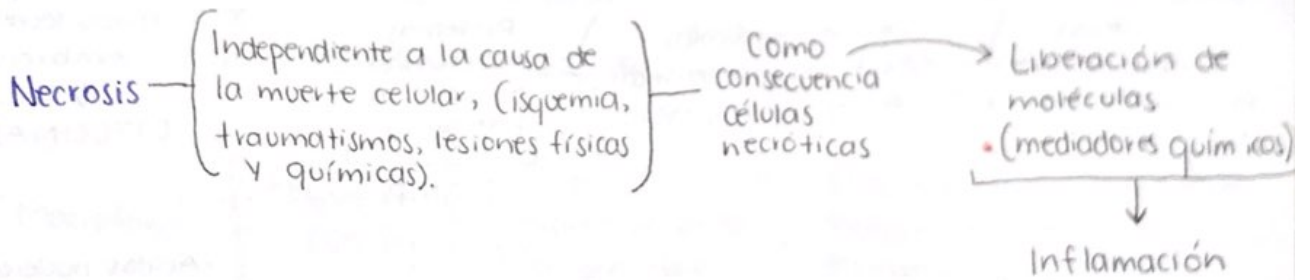 Necrosis
Independiente a la causa de
la muerte celular, (isquemia,
traumatismos, lesiones físicas
y químicas).
Como
consecuencia
células
necróticas
Liberación de
moléculas
• (mediadores químicos)
Inflamación